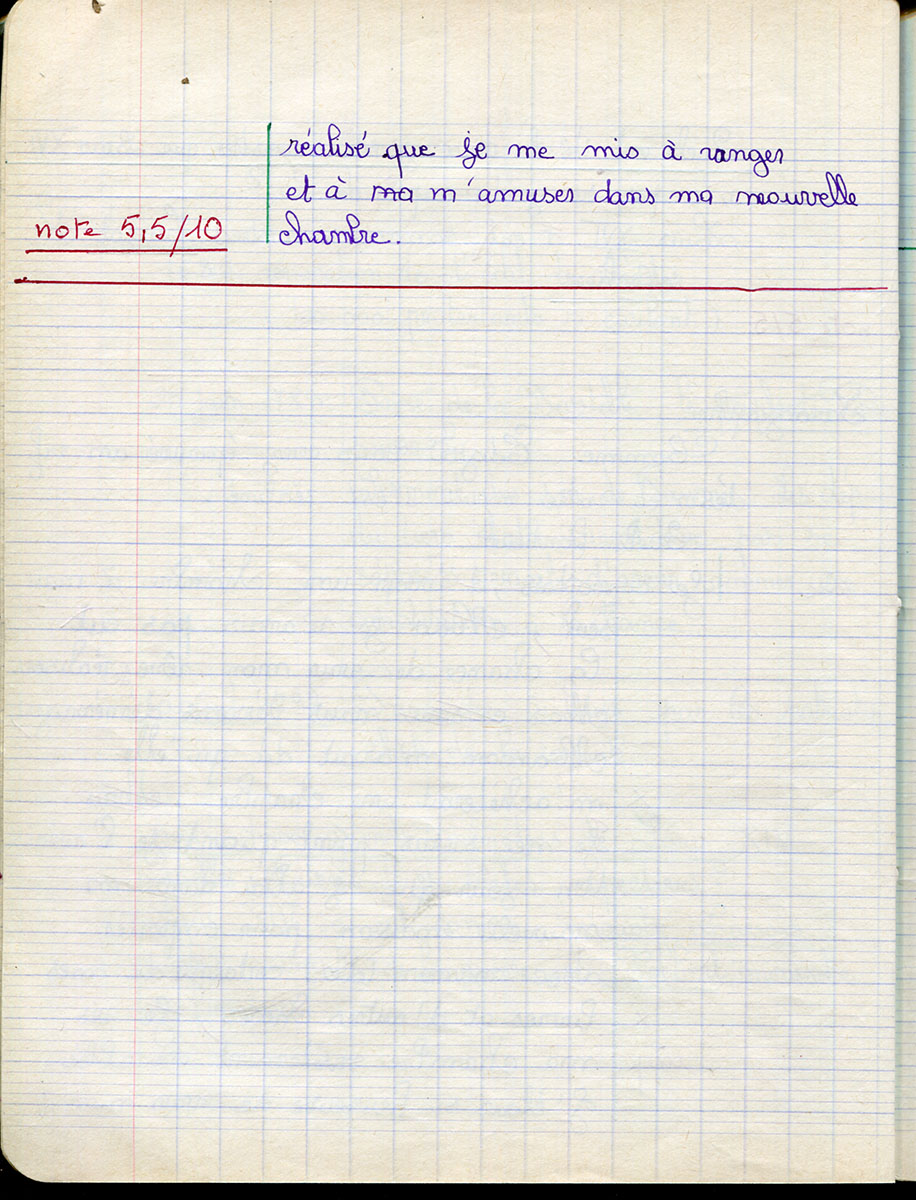 réalisé que je me mis à ranger
et à ma m'amuser dans ma nouvelle
note 5,5/10
chambre.